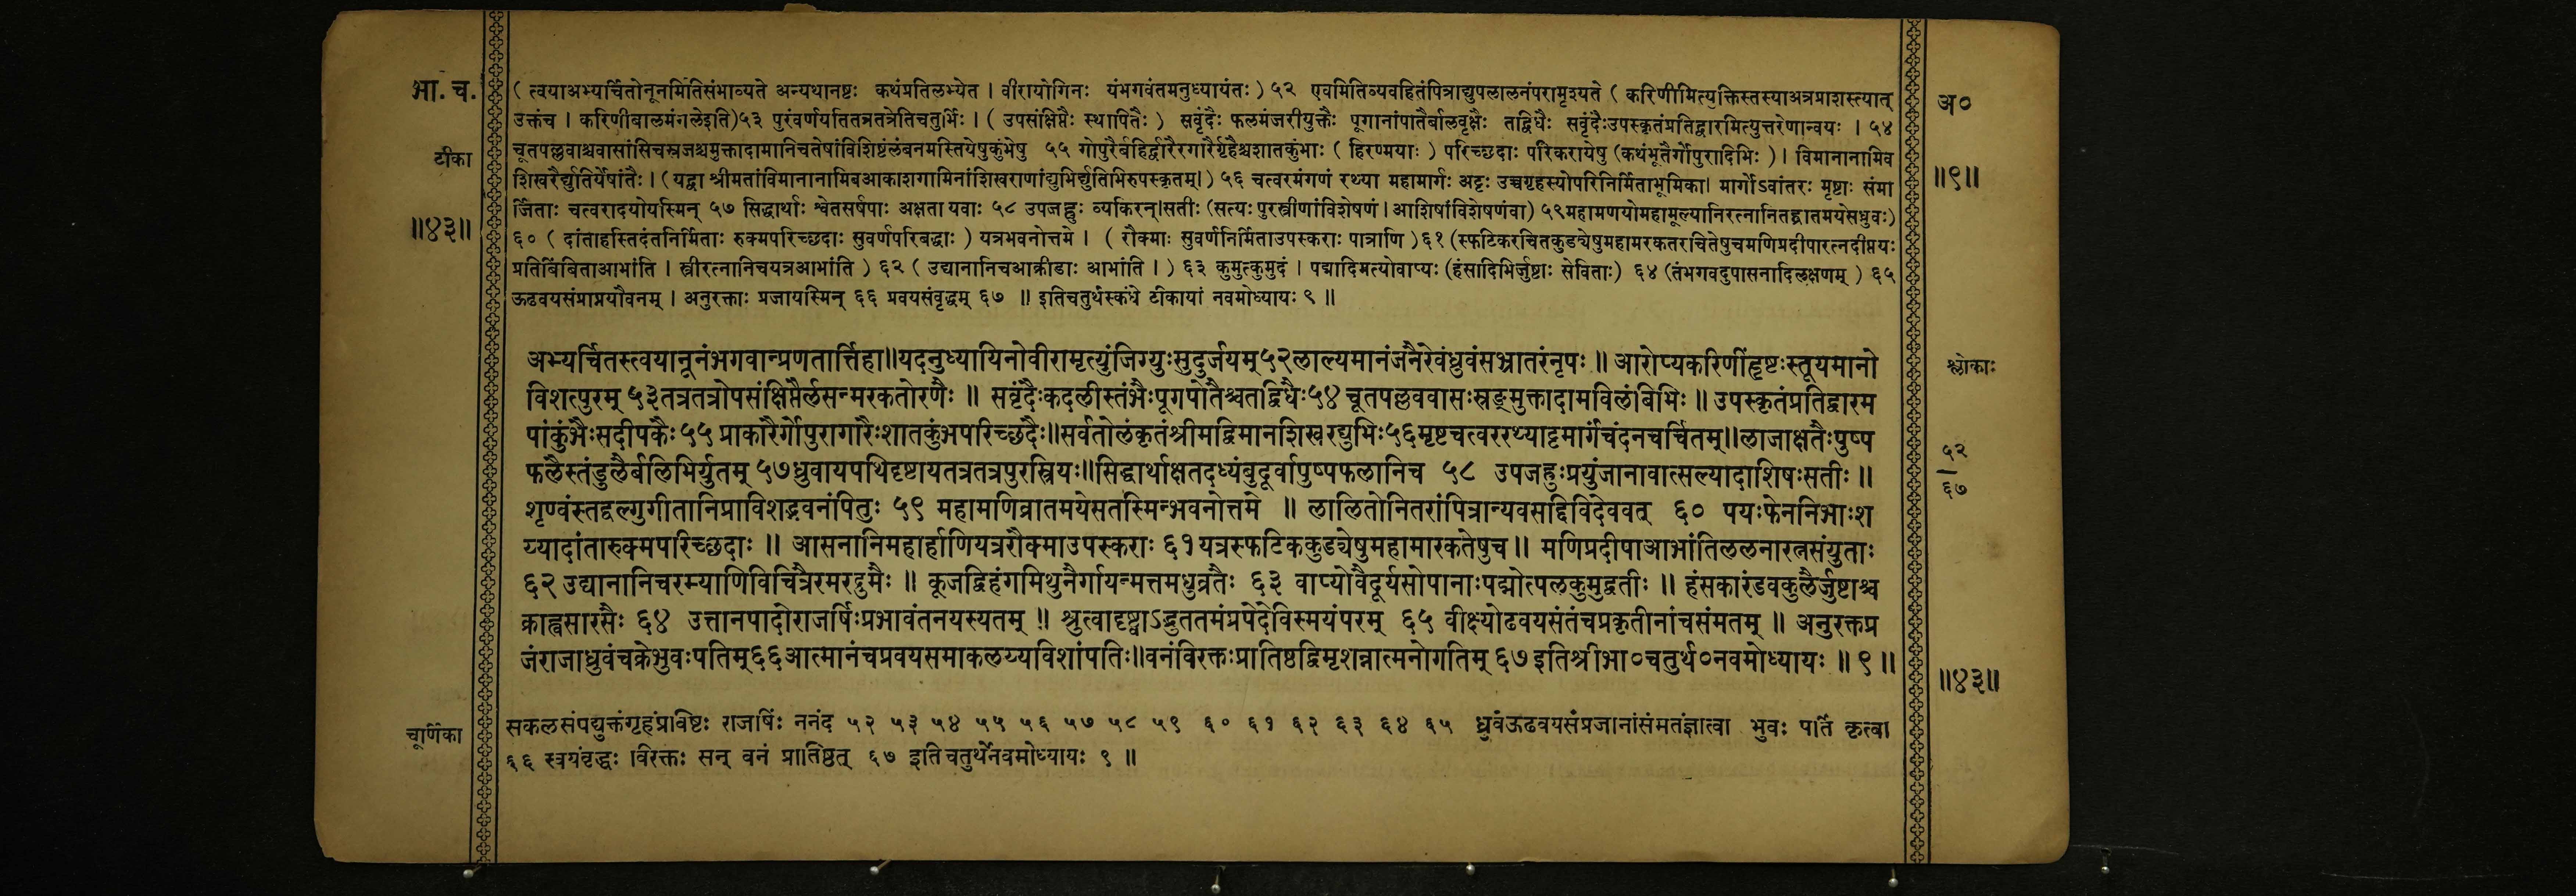 भा. च.
टीका
॥४३॥
( त्वयाअभ्यर्चितोनूनमितिसंभाव्यते अन्यथानष्टः कथंप्रतिलभ्येत । वीरायोगिनः यंभगवंतमनुध्यायंतः ) ५२ एवमितिव्यवहितंपित्राद्युपलालनंपरामृश्यते ( करिणीमित्युक्तिस्तस्याअत्रप्राशस्त्यात्
उक्तंच । करिणीबालमंगलेइति)५३ पुरंवर्णयतितत्रतत्रेतिचतुर्भिः । ( उपसंक्षिप्तैः स्थापितैः ) सवृंदैः फलमंजरीयुक्तैः पूगानांपोतैर्बालवृक्षैः तद्विधैः सवृंदैःउपस्कृतंप्रतिद्वारमित्युत्तरेणान्वयः । ५४
चूतपल्लवाश्चवासांसिचस्रजश्चमुक्तादामानिचतेषांविशिष्टंलंबनमस्तियेषुकुंभेषु ५५ गोपुरैर्बहिर्द्वारैरगारैर्गृहैश्चशातकुंभाः ( हिरण्मयाः ) परिच्छदाः परिकरायेषु (कथंभूतैर्गोपुरादिभिः ) । विमानानामिव
शिखरैर्द्युतिर्येषांतैः । (यद्वा श्रीमतांविमानानामिवआकाशगामिनांशिखराणांद्युभिर्द्युतिभिरुपस्कृतम्।) ५६ चत्वरमंगणं रथ्या महामार्गः अट्टः उच्चगृहस्योपरिनिर्मिताभूमिका। मार्गोऽवांतरः मृष्टाः संमा
र्जिताः चत्वरादयोयस्मिन् ५७ सिद्धार्थाः श्वेतसर्षपाः अक्षता यवाः ५८ उपजह्रुः व्यकिरन्।सतीः (सत्यः पुरस्त्रीणांविशेषणं । आशिषांविशेषणंवा) ५९महामणयोमहामूल्यानिरत्नानितद्व्रातमयेसध्रुवः)
६० ( दांताहस्तिदंतनिर्मिताः रुक्मपरिच्छदाः सुवर्णपरिबद्धाः ) यत्रभवनोत्तमे । ( रौक्माः सुवर्णनिर्मिताउपस्कराः पात्राणि )६१ (स्फटिकरचितकुड्येषुमहामरकतरचितेषुचमणिप्रदीपारत्नदीप्तयः
प्रतिबिंबिताआभांति । स्त्रीरत्नानिचयत्रआभांति ) ६२ ( उद्यानानिचआक्रीडाः आभांति । ) ६३ कुमुत्कुमुदं । पद्मादिमत्योवाप्यः (हंसादिभिर्जुष्टाः सेविताः) ६४ (तंभगवदुपासनादिलक्षणम् ) ६५
ऊढवयसंप्राप्तयौवनम् । अनुरक्ताः प्रजायस्मिन् ६६ प्रवयसंवृद्धम् ६७ ॥ इतिचतुर्थस्कंधे टीकायां नवमोध्यायः ९ ॥
अभ्यर्चितस्त्वयानूनंभगवान्प्रणतार्त्तिहा॥यदनुध्यायिनोवीरामृत्युंजिग्युःसुदुर्जयम्५२लाल्यमानंजनैरेवंध्रुवंसभ्रातरंनृपः ॥ आरोप्यकरिणींहृष्टःस्तूयमानो
विशत्पुरम् ५३तत्रतत्रोपसंक्षिप्तैर्लसन्मरकतोरणैः ॥ सवृंदैःकदलीस्तंभैःपूगपोतैश्चतद्विधैः५४ चूतपल्लववासःस्रङ्मुक्तादामविलंबिभिः ॥ उपस्कृतंप्रतिद्वारम
पांकुंभैःसदीपकैः ५५ प्राकारैर्गोपुरागारैःशातकुंभपरिच्छदैः॥सर्वतोलंकृतंश्रीमद्विमानशिखरद्युभिः५६मृष्टचत्वररथ्याट्टमार्गंचंदनचर्चितम्॥लाजाक्षतैःपुष्प
फलैस्तंडुलैर्बलिभिर्युतम् ५७ध्रुवायपथिदृष्टायतत्रतत्रपुरस्त्रियः॥सिद्धार्थाक्षतदध्यंबुदूर्वापुष्पफलानिच ५८ उपजह्रुःप्रयुंजानावात्सल्यादाशिषःसतीः ॥
शृण्वंस्तद्वल्गुगीतानिप्राविशद्भवनंपितुः ५९ महामणिव्रातमयेसतस्मिन्भवनोत्तमे ॥ लालितोनितरांपित्रान्यवसद्दिविदेववत् ६० पयःफेननिभाःश
य्यादांतारुक्मपरिच्छदाः ॥ आसनानिमहार्हाणियत्ररौक्माउपस्कराः ६१यत्रस्फटिककुड्येषुमहामारकतेषुच॥ मणिप्रदीपाआभांतिललनारत्नसंयुताः
६२ उद्यानानिचरम्याणिविचित्रैरमरद्रुमैः ॥ कूजद्विहंगमिथुनैर्गायन्मत्तमधुव्रतैः ६३ वाप्योवैदूर्यसोपानाःपद्मोत्पलकुमुद्वतीः ॥ हंसकारंडवकुलैर्जुष्टाश्च
क्राह्वसारसैः ६४ उत्तानपादोराजर्षिःप्रभावंतनयस्यतम् ॥ श्रुत्वादृष्ट्वाऽद्भुततमंप्रपेदेविस्मयंपरम् ६५ वीक्ष्योढवयसंतंचप्रकृतीनांचसंमतम् ॥ अनुरक्तप्र
जंराजाध्रुवंचक्रेभुवःपतिम्६६आत्मानंचप्रवयसमाकलय्यविशांपतिः॥वनंविरक्तःप्रातिष्ठद्विमृशन्नात्मनोगतिम् ६७ इतिश्रीभा०चतुर्थ०नवमोध्यायः ॥ ९ ॥
चूर्णिका
सकलसंपद्युक्तंगृहंप्रविष्टः राजर्षिः ननंद ५२ ५३ ५४ ५५ ५६ ५७ ५८ ५९ ६० ६१ ६२ ६३ ६४ ६५ ध्रुवंऊढवयसंप्रजानांसंमतंज्ञात्वा भुवः पतिं कृत्वा
६६ स्वयंवृद्धः विरक्तः सन् वनं प्रातिष्ठत् ६७ इति चतुर्थेनवमोध्यायः ९ ॥
अ०
॥९॥
श्लोकाः
५२
६७
॥४३॥